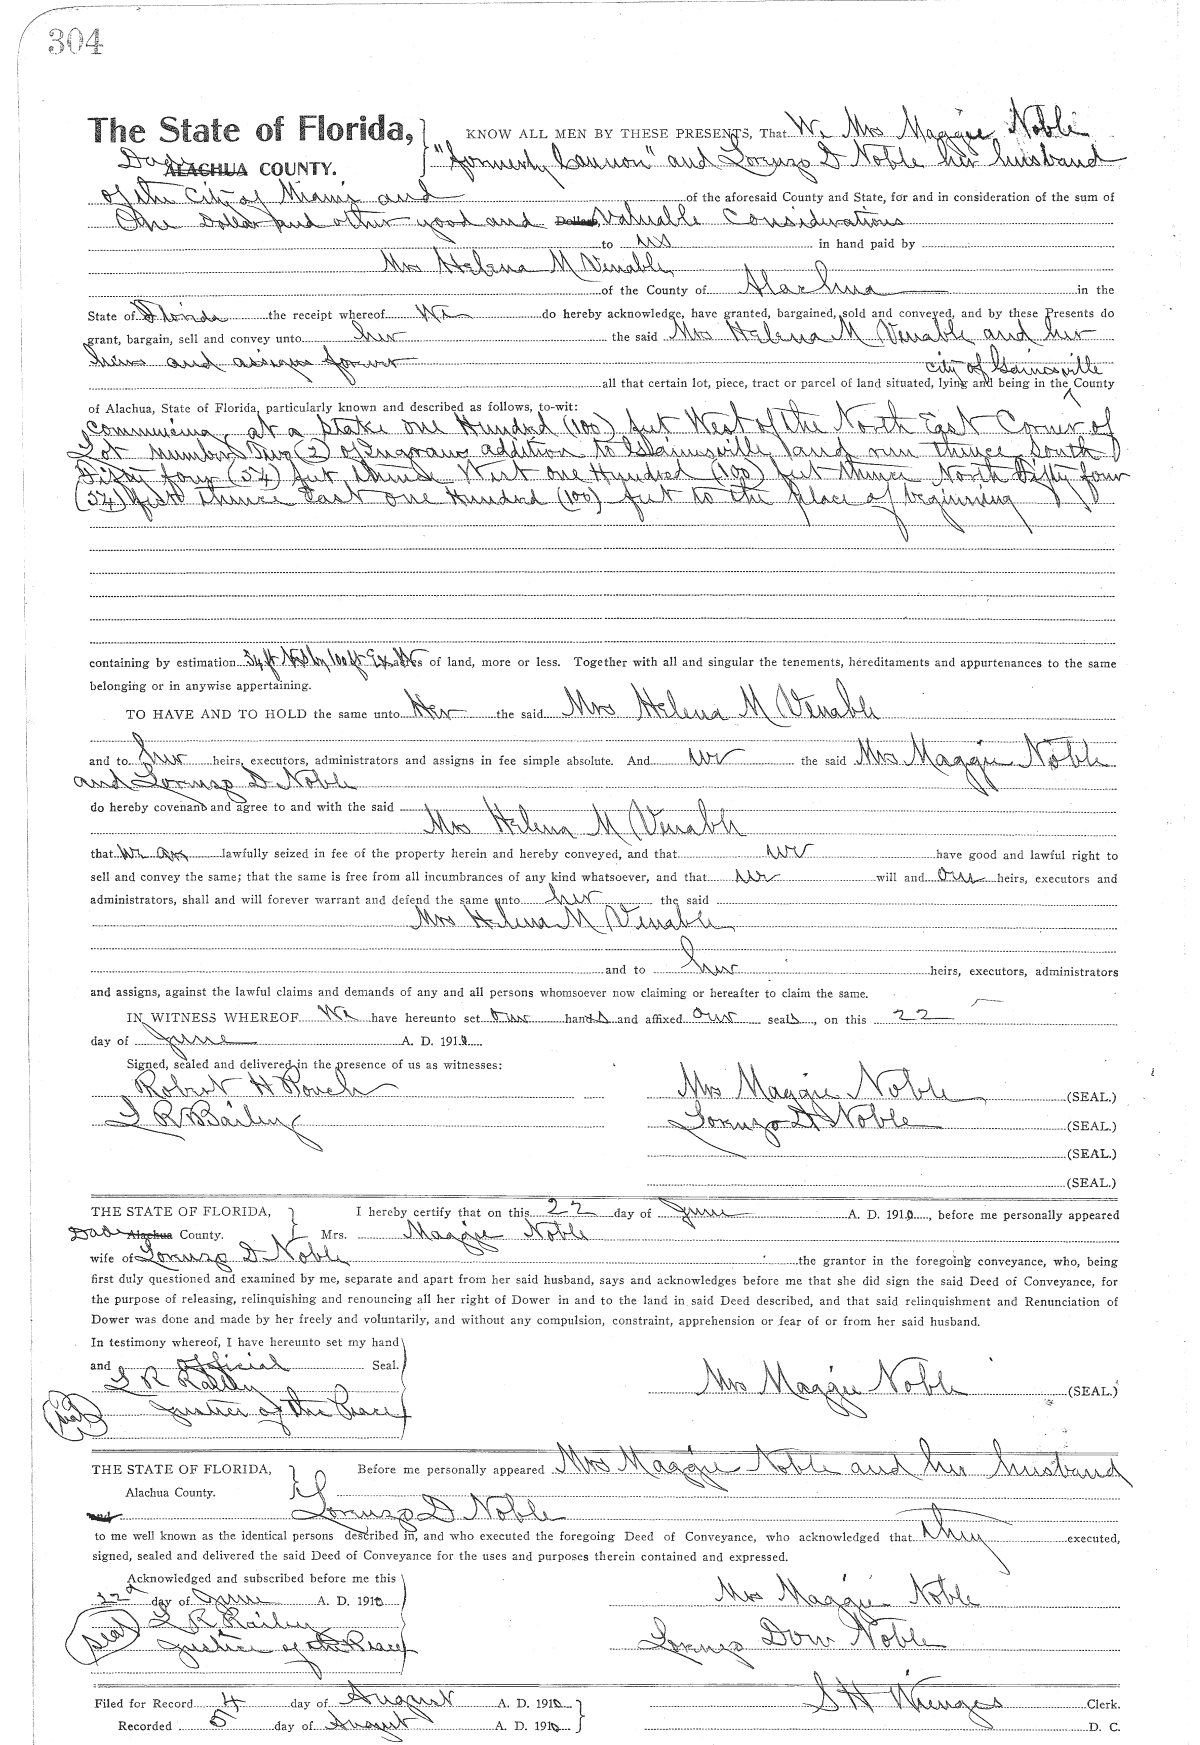 304
The State of Florida, KNOW ALL MEN BY THESE PRESENTS, That We Mrs Maggie Noble
Dade ALACHUA COUNTY. "formerly Cannon" and Lorenzo D Noble her husband
of the City of Miami and of the aforesaid County and State, for and in consideration of the sum of
One Dollar and other good and Dollars, Valuable Considerations
to us in hand paid by
Mrs Helena M Venable
of the County of Alachua in the
State of Florida the receipt whereof We do hereby acknowledge, have granted, bargained, sold and conveyed, and by these Presents do
grant, bargain, sell and convey unto her the said Mrs Helena M Venable and her
heirs and assigns forever city of Gainesville
all that certain lot, piece, tract or parcel of land situated, lying and being in the County
of Alachua, State of Florida, particularly known and described as follows, to-wit:
Commencing at a stake one Hundred (100) feet West of the North East Corner of
Lot number Two (2) of Ingrams addition to Gainesville and run thence South
Fifty four (54) feet thence West one Hundred (100) feet thence North Fifty four
(54) feet thence East one Hundred (100) feet to the place of beginning
containing by estimation 54 ft N&S by 100 ft E&W acres of land, more or less. Together with all and singular the tenements, hereditaments and appurtenances to the same
belonging or in anywise appertaining.
TO HAVE AND TO HOLD the same unto Her the said Mrs Helena M Venable
and to her heirs, executors, administrators and assigns in fee simple absolute. And we the said Mrs Maggie Noble
and Lorenzo D Noble
do hereby covenant and agree to and with the said
Mrs Helena M Venable
that we are lawfully seized in fee of the property herein and hereby conveyed, and that we have good and lawful right to
sell and convey the same; that the same is free from all incumbrances of any kind whatsoever, and that we will and our heirs, executors and
administrators, shall and will forever warrant and defend the same unto her the said
Mrs Helena M Venable
and to her heirs, executors, administrators
and assigns, against the lawful claims and demands of any and all persons whomsoever now claiming or hereafter to claim the same.
IN WITNESS WHEREOF We have hereunto set our hands and affixed our seals, on this 22
day of June A. D. 1910
Signed, sealed and delivered in the presence of us as witnesses:
Robert H Mrs Maggie Noble (SEAL.)
L R Lorenzo D Noble (SEAL.)
(SEAL.)
(SEAL.)
THE STATE OF FLORIDA, I hereby certify that on this 22 day of June A. D. 1910, before me personally appeared
Dade Alachua County. Mrs. Maggie Noble
wife of Lorenzo D Noble the grantor in the foregoing conveyance, who, being
first duly questioned and examined by me, separate and apart from her said husband, says and acknowledges before me that she did sign the said Deed of Conveyance, for
the purpose of releasing, relinquishing and renouncing all her right of Dower in and to the land in said Deed described, and that said relinquishment and Renunciation of
Dower was done and made by her freely and voluntarily, and without any compulsion, constraint, apprehension or fear of or from her said husband.
In testimony whereof, I have hereunto set my hand
and official Seal.
L R Railey Mrs Maggie Noble (SEAL.)
seal Justice of the Peace
THE STATE OF FLORIDA, Before me personally appeared Mrs Maggie Noble and her husband
Alachua County.
and Lorenzo D Noble
to me well known as the identical persons described in, and who executed the foregoing Deed of Conveyance, who acknowledged that they executed,
signed, sealed and delivered the said Deed of Conveyance for the uses and purposes therein contained and expressed.
Acknowledged and subscribed before me this
22d day of June A. D. 1910 Mrs Maggie Noble
seal L R Railey
Justice of the Peace Lorenzo Dow Noble
Filed for Record 4 day of August A. D. 1910 S H Wienges Clerk.
Recorded 5 day of August A. D. 1910 D. C.